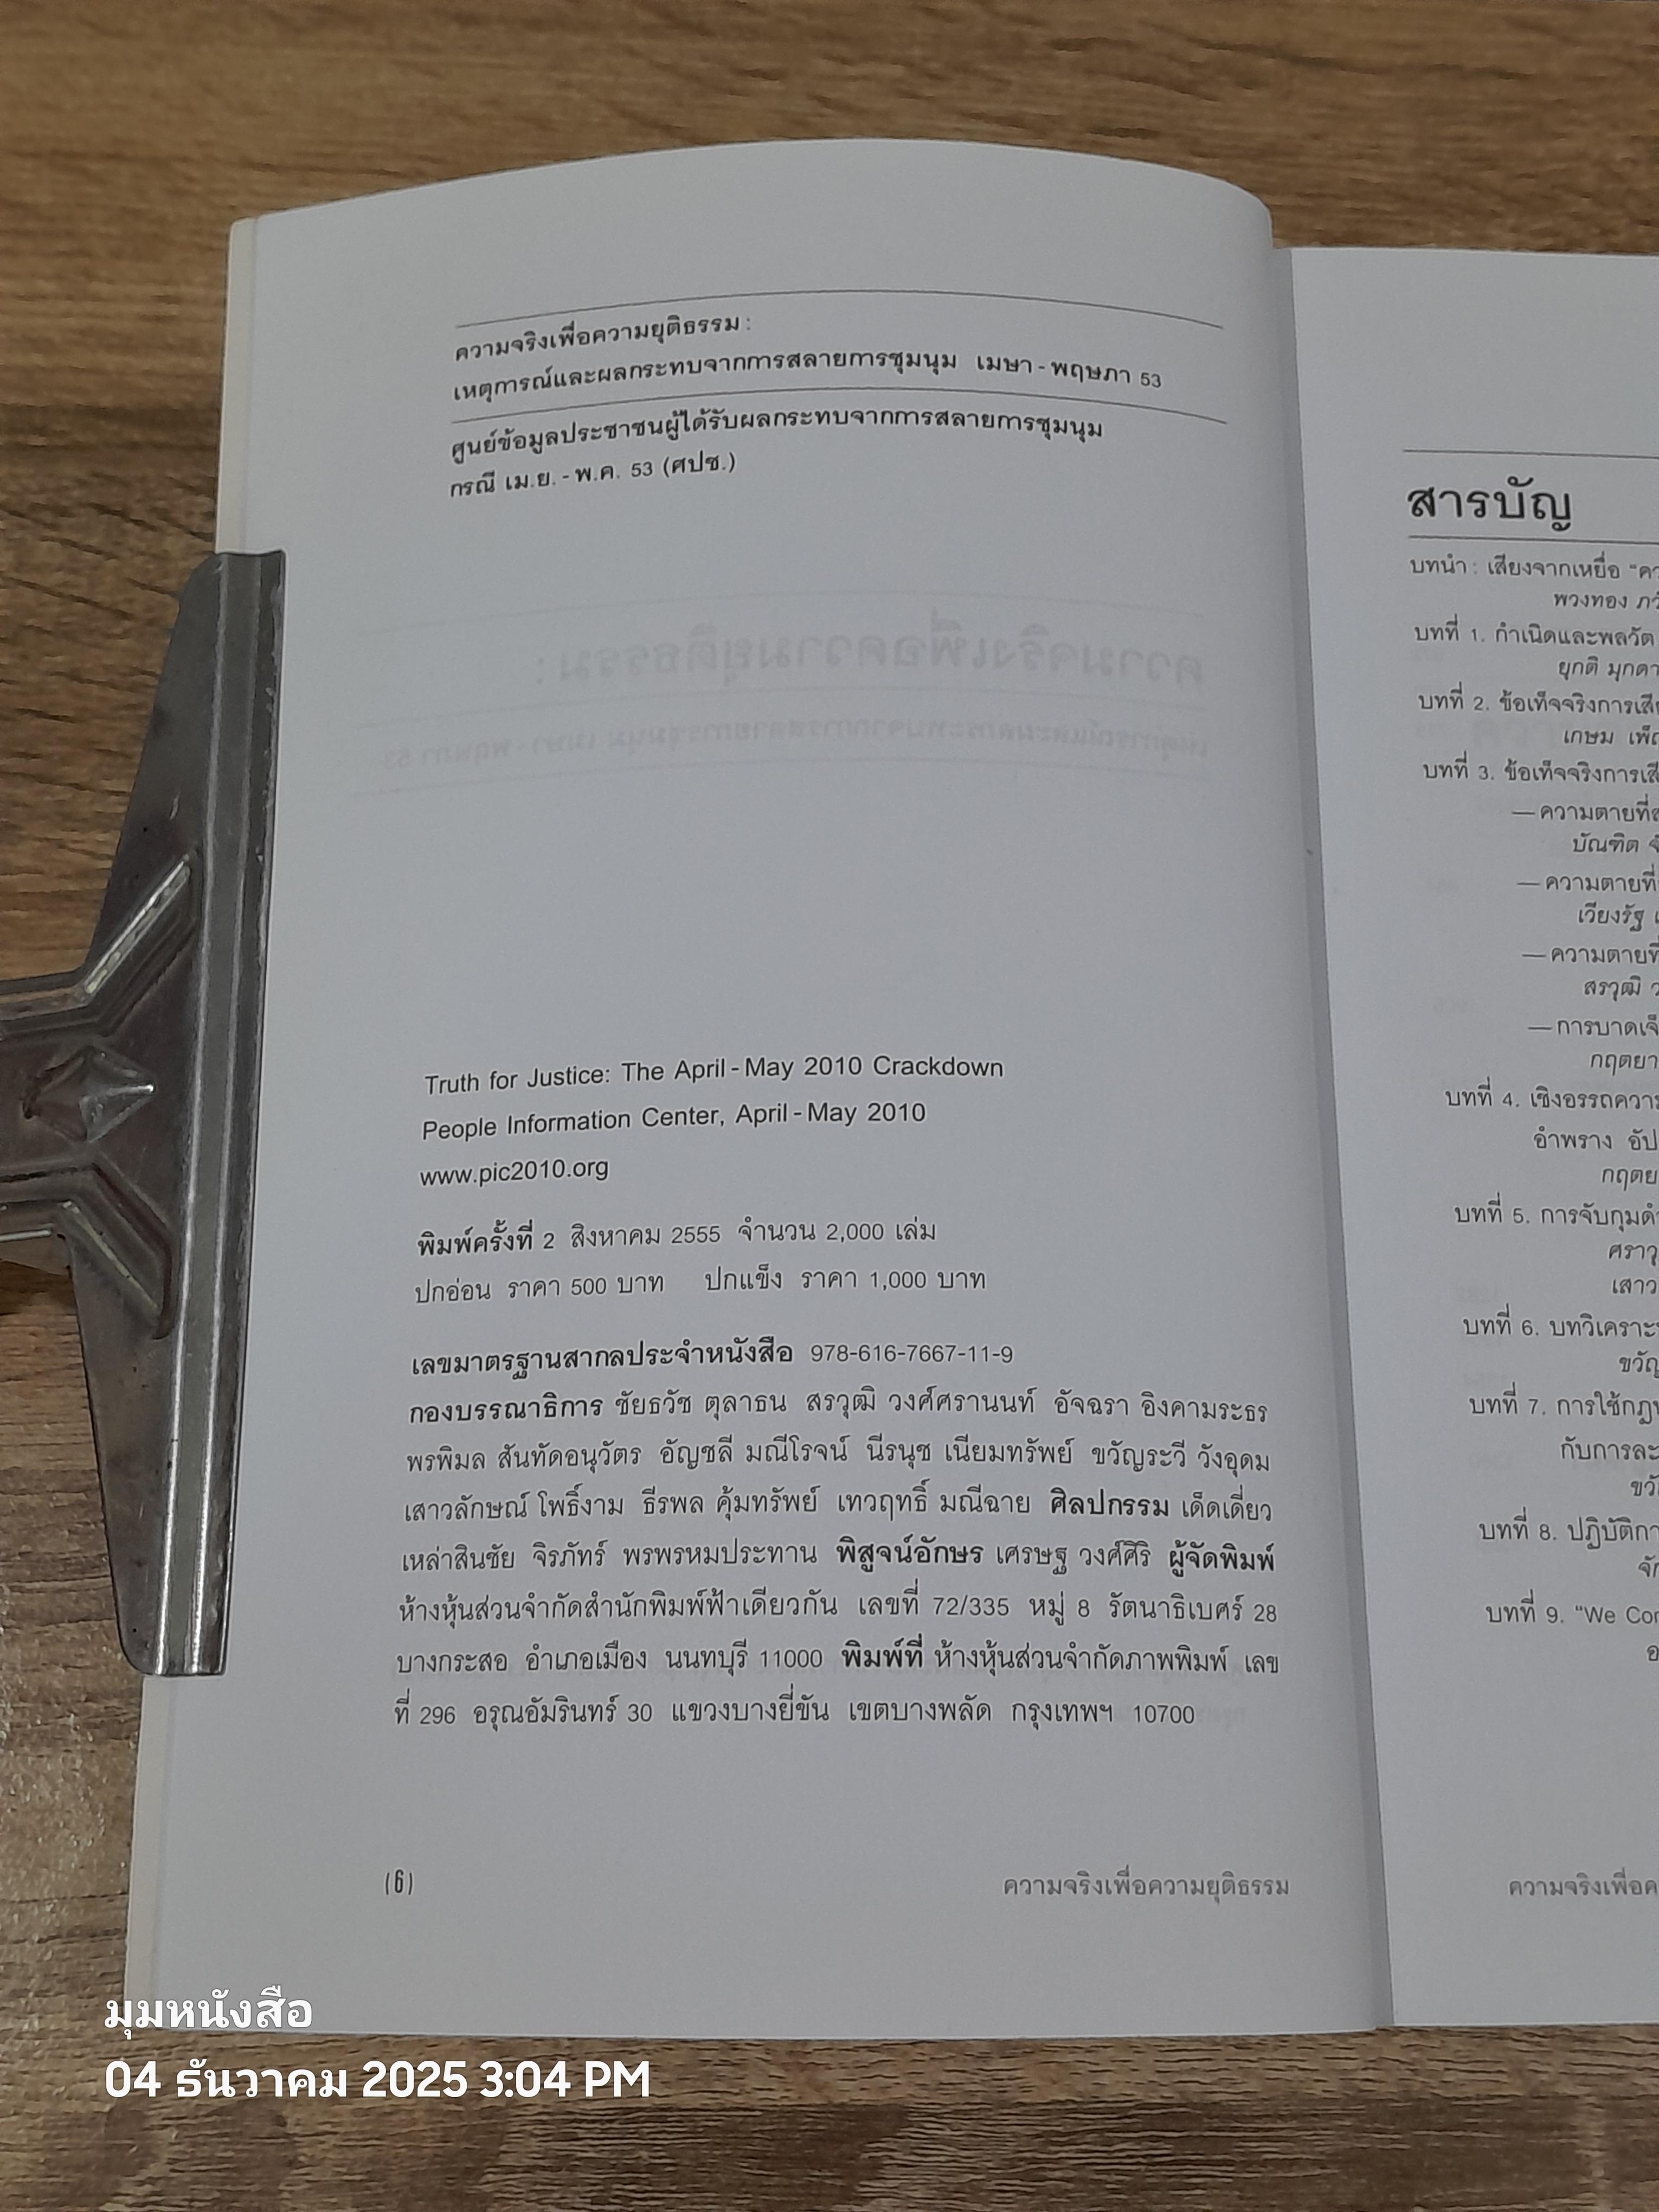 ความจริงเพื่อความยุติธรรม :
เหตุการณ์และผลกระทบจากการสลายการชุมนุม เมษา - พฤษภา 53
ศูนย์ข้อมูลประชาชนผู้ได้รับผลกระทบจากการสลายการชุมนุม
กรณี เม.ย. - พ.ค. 53 (ศปช.)
Truth for Justice: The April - May 2010 Crackdown
People Information Center, April - May 2010
www.pic2010.org
พิมพ์ครั้งที่ 2 สิงหาคม 2555 จำนวน 2,000 เล่ม
ปกอ่อน ราคา 500 บาท ปกแข็ง ราคา 1,000 บาท
เลขมาตรฐานสากลประจำหนังสือ 978-616-7667-11-9
กองบรรณาธิการ ชัยธวัช ตุลาธน สรวุฒิ วงศ์ศรานนท์ อัจฉรา อิงคามระธร
พรพิมล สันทัดอนุวัตร อัญชลี มณีโรจน์ นีรนุช เนียมทรัพย์ ขวัญระวี วังอุดม
เสาวลักษณ์ โพธิ์งาม ธีรพล คุ้มทรัพย์ เทวฤทธิ์ มณีฉาย ศิลปกรรม เด็ดเดี่ยว
เหล่าสินชัย จิรภัทร์ พรพรหมประทาน พิสูจน์อักษร เศรษฐ วงศ์ศิริ ผู้จัดพิมพ์
ห้างหุ้นส่วนจำกัดสำนักพิมพ์ฟ้าเดียวกัน เลขที่ 72/335 หมู่ 8 รัตนาธิเบศร์ 28
บางกระสอ อำเภอเมือง นนทบุรี 11000 พิมพ์ที่ ห้างหุ้นส่วนจำกัดภาพพิมพ์ เลข
ที่ 296 อรุณอัมรินทร์ 30 แขวงบางยี่ขัน เขตบางพลัด กรุงเทพฯ 10700
(6)
ความจริงเพื่อความยุติธรรม
สารบัญ
บทนำ : เสียงจากเหยื่อ
พวงทอง
บทที่ 1. กำเนิดและพลวัต
ยุกติ
บทที่ 2. ข้อเท็จจริงการ
เกษม
บทที่ 3. ข้อเท็จจริงการ
— ความตายที่
บัณฑิต
— ความตายที่
เวียงรัฐ
— ความตายที่
สรวุฒิ
— การบาดเจ็
กฤตยา
บทที่ 4. เชิงอรรถ
อำพราง
บทที่ 5. การจับกุม
บทที่ 6. บทวิเคราะ
บทที่ 7. การใช้
กับการ
บทที่ 8. ปฏิบัติ
บทที่ 9. "We
ความจริงเพื่อ
มุมหนังสือ
04 ธันวาคม 2025 3:04 PM